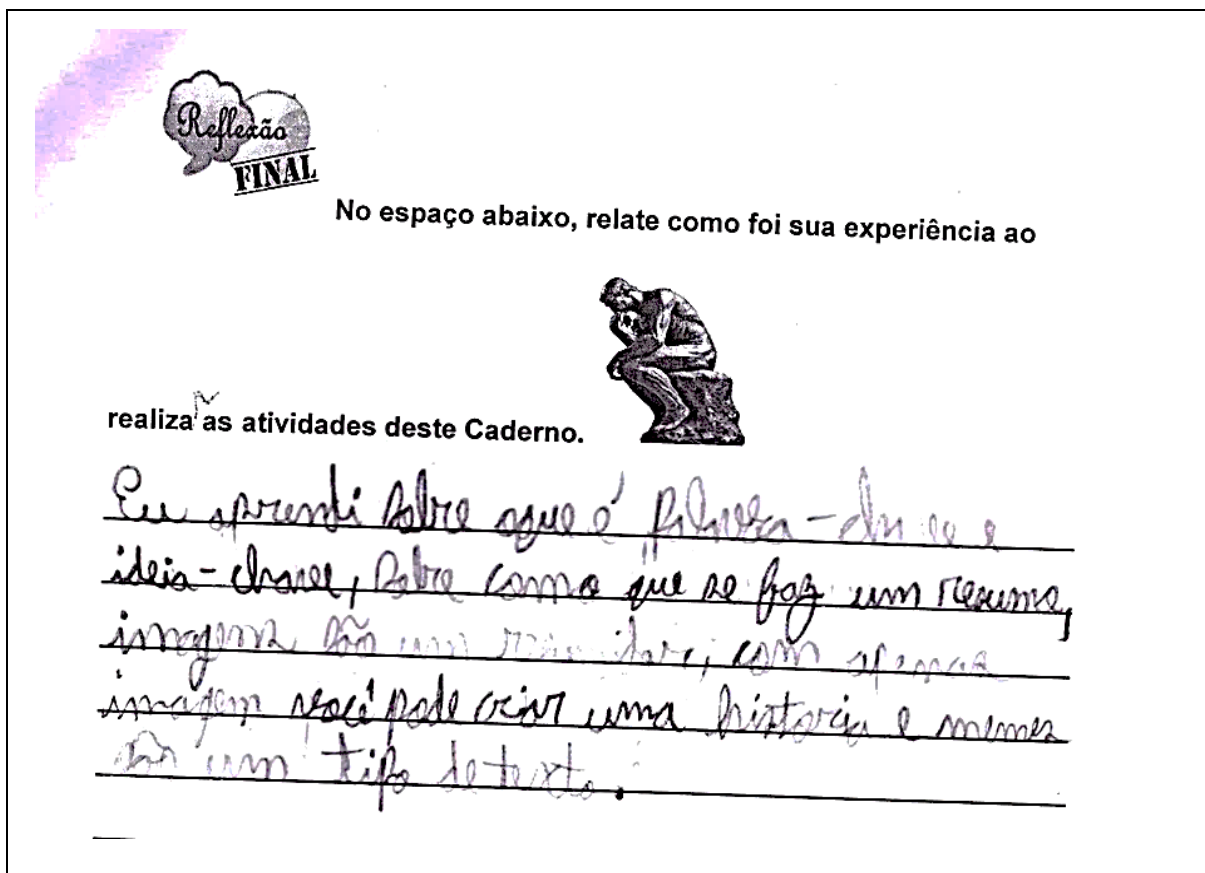 Reflexão
FINAL
No espaço abaixo, relate como foi sua experiência ao
realiza r as atividades deste Caderno.
Eu aprendi sobre oque é palavra-chave e
ideia-chave, sobre como que se faz um resumo,
imagens são um com apenas
imagem você pode criar uma historia e memes
são um tipo de texto.